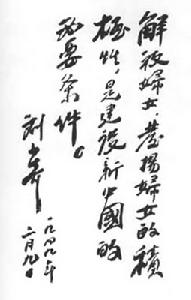 解放婦女，發揚婦女的積
極性，是建設新中國的
必要条件。
刘少奇
一九四九年
六月九日